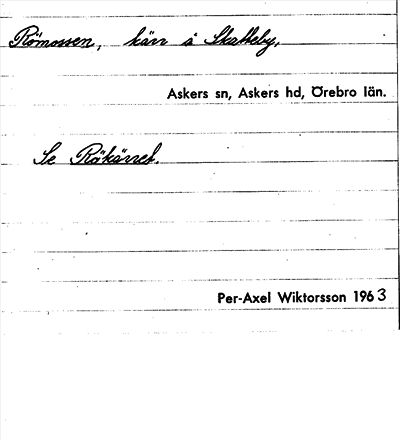 Römossen, kärr å Skatteby.
Askers sn, Askers hd, Örebro län.
Se Rökärret.
Per-Axel Wiktorsson 1963